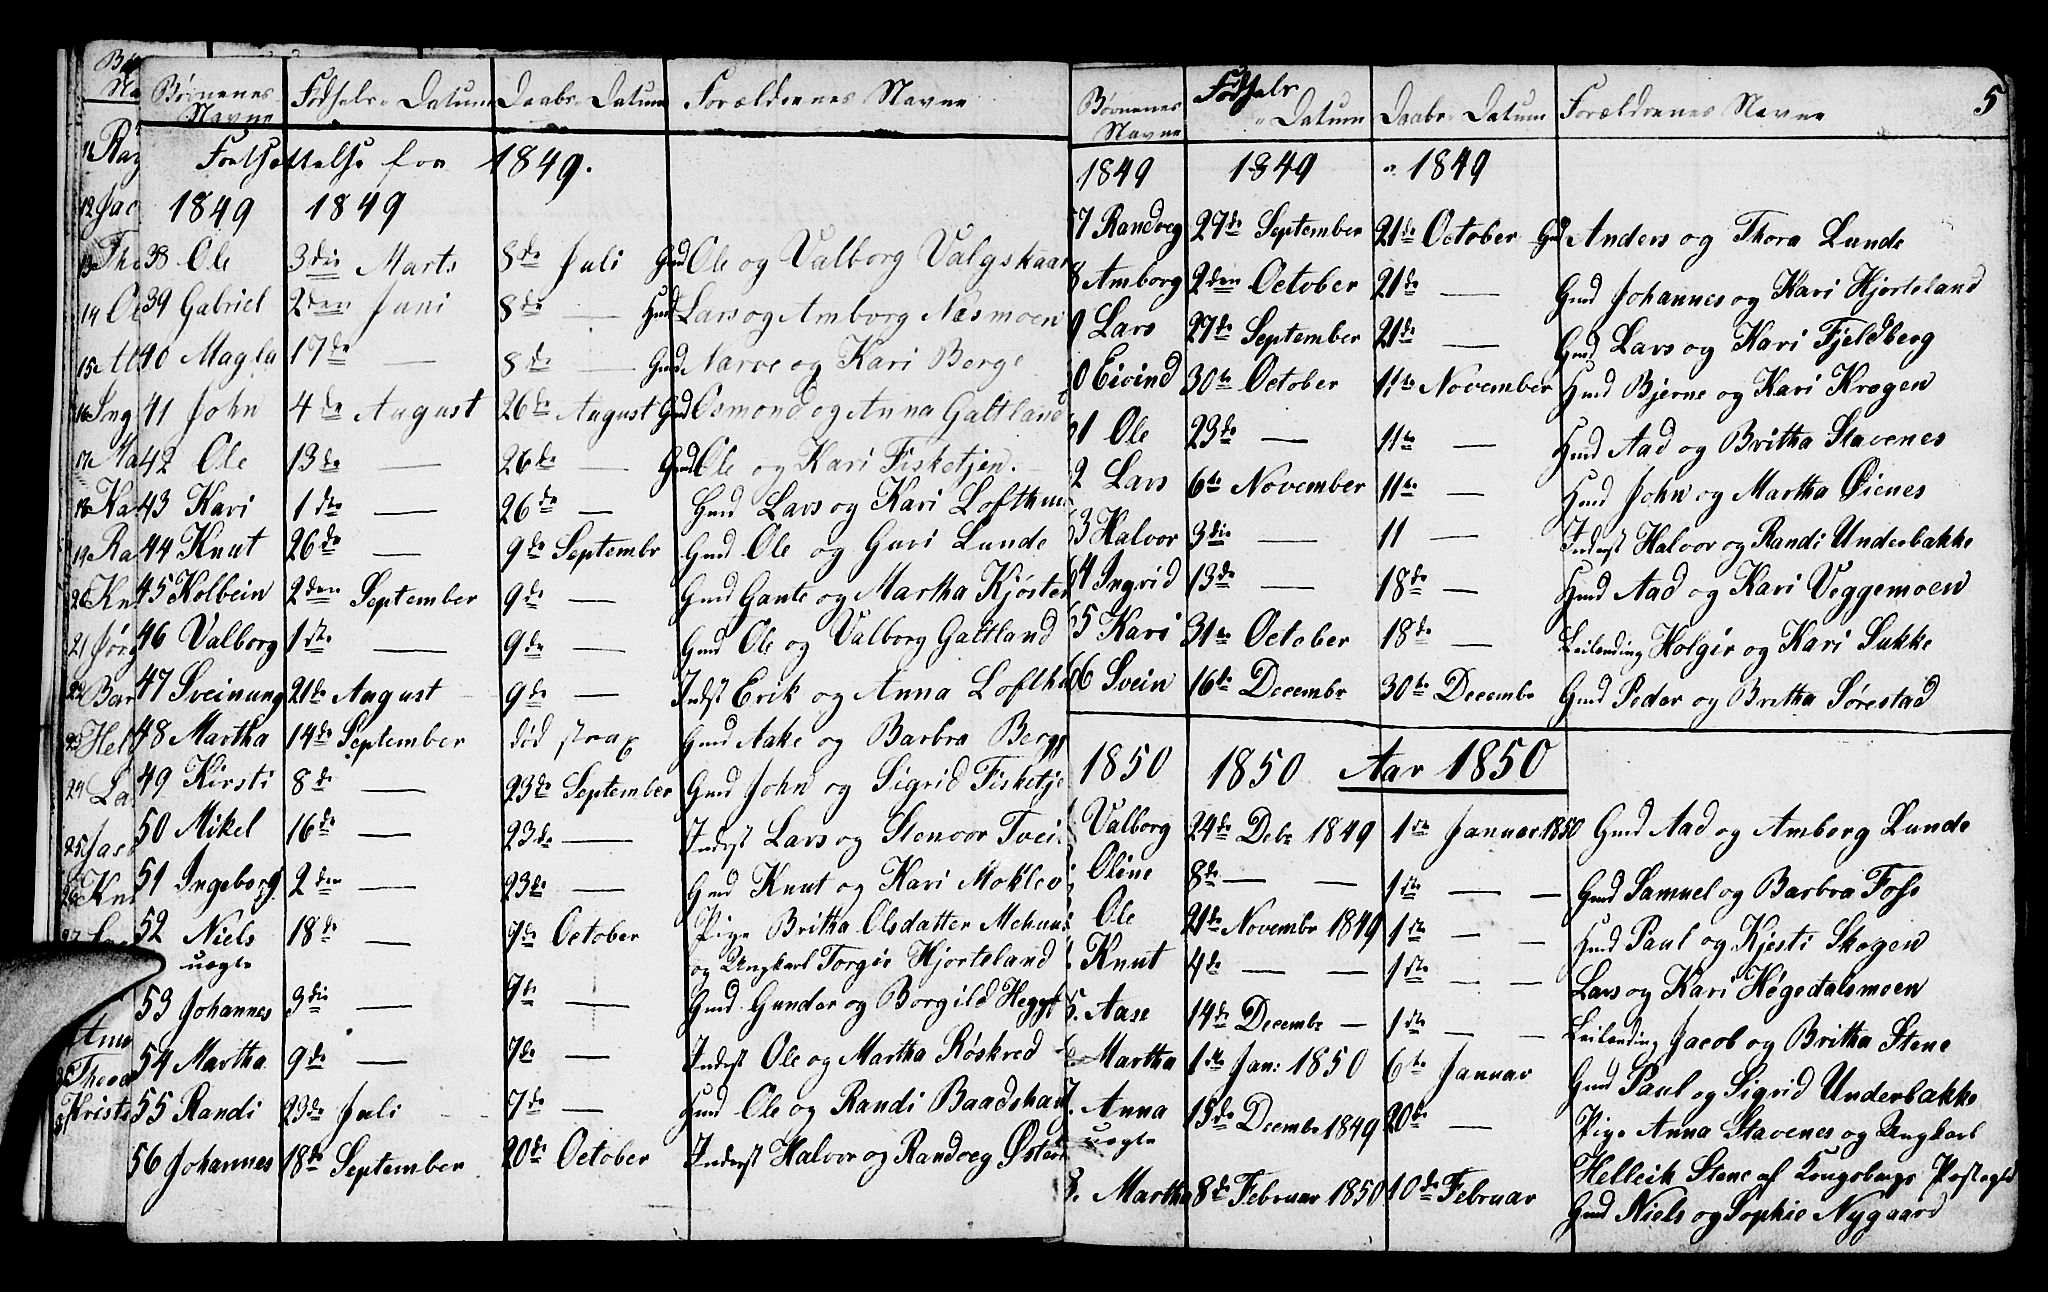 Børnenes Navne Fødsels-Datum Daabs-Datum Forældrenes Navne
Fortsættelse for 1849.
1849 1849
38 Ole 3die Marts 8de Juli Gmd Ole og Valborg Valgskaar
39 Gabriel 2den Juni 8de — Hmd Lars og Amborg Næsmoen
40 Magla 17de — 8de — Gmd Narve og Kari Berge
41 John 4de August 26de August Gmd Osmond og Anna Galtland
42 Ole 13de — 26de — Gmd Ole og Kari Fisketjen.
43 Kari 1ste — 26de — Gmd Lars og Kari Lofthu
44 Knut 26de — 9de Septembr Gmd Ole og Guri Lunde
45 Kolbein 2den September 9de — Gmd Gunte og Martha Kjøste
46 Valborg 1ste — 9de — Gmd Ole og Valborg Galtland
47 Sveinung 21de August 9de — Inderst Erik og Anna Lofthu
48 Martha 14de September død strax Gmd Aake og Barbra Berg
49 Kirsti 8de — 23de September Gmd John og Sigrid Fisketje
50 Mikel 16de — 23de — Inderst Lars og Stenvor Tvei
51 Ingeborg 2den — 23de — Gmd Knut og Kari Moklev
52 Niels 18de — 7de October Pige Britha Olsdatter Mehuus
uægte og Ungkarl Torgie Hjorteland
53 Johannes 3die — 7de — Gmd. Gunder og Borgild Heggt
54 Martha 9de — 7de — Inderst Ole og Martha Røskred
55 Randi 23de Juli 7de — Hmd Ole og Randi Baadshau
56 Johannes 18de September 20de October Inderst Halvor og Randveg Østen
5
Børnenes Navne Fødsels-Datum Daabs-Datum Forældrenes Navne
1849 1849 1849
7 Randveg 27de September 21de October Gmd Anders og Thora Lunde
8 Amborg 2den October 21de — Gmd Johannes og Kari Hjorteland
9 Lars 27de September 21de — Gmd Lars og Kari Fjeldberg
0 Eivind 30te October 11te November Hmd Bjerne og Kari Krogen
61 Ole 23de — 11te — Hmd Aad og Britha Stavenes
2 Lars 6te November 11te — Hmd John og Martha Øienes
63 Halvor 3die — 11 — Inderst Halvor og Randi Underbakke
64 Ingrid 13de — 18de — Hmd Aad og Kari Veggemoen
65 Kari 31te October 18de — Leilending Holgir og Kari Lukke
66 Svein 16de Decembr 30te Decembr Gmd Peder og Britha Sørestad
1850 1850 Aar 1850
Valborg 24de Debr 1849 1ste Januar 1850 Gmd Aad og Amborg Lunde
Oline 8de — — 1ste — — Gmd Samuel og Barbra Foss
Ole 21de Novembr 1849 1ste — — Hmd Paul og Kjesti Skogen
Knut 4de — — 1ste — — Lars og Kari Høgedalsmoen
5. Aase 14de Decembr — 1ste — — Leilending Jacob og Britha Stene
Martha 1ste Jan: 1850 6te Januar Gmd Paul og Sigrid Underbakke
7. Anna 15de Decembr 1849 20de — Pige Anna Stavenes og Ungkarl
uægte Helleik Stene af Kongsbergs Præstegld
8. Martha 8de Februar 1850 10de Februar Gmd Niels og Sophie Nygaard